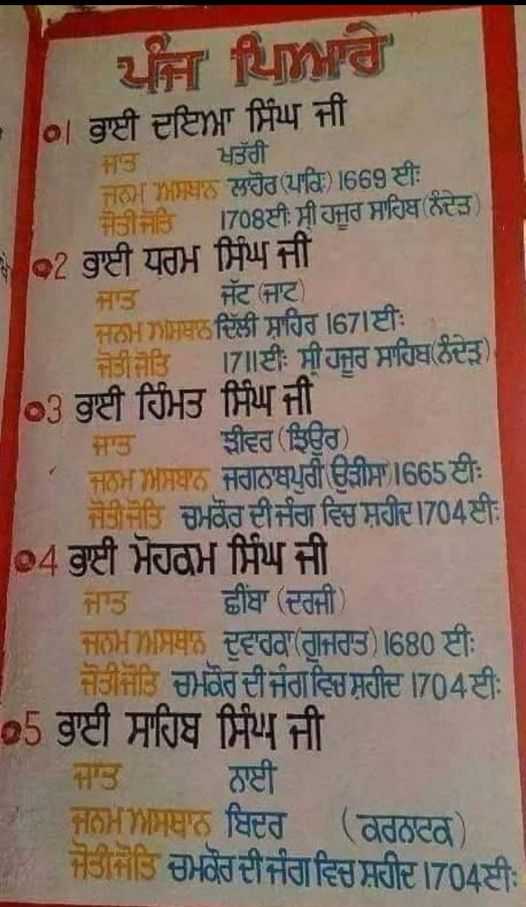 ਪੰਜ ਪਿਆਰੇ
01 ਭਾਈ ਦਇਆ ਸਿੰਘ ਜੀ
ਜਾਤ ਖਤੱਰੀ
ਜਨਮ ਅਸਥਾਨ ਲਾਹੌਰ (ਪਾਕਿ:) 1669 ਈ:
ਜੋਤੀਜੋਤਿ 1708ਈ: ਸ੍ਰੀ ਹਜੂਰ ਸਾਹਿਬ (ਨੰਦੇੜ)
02 ਭਾਈ ਧਰਮ ਸਿੰਘ ਜੀ
ਜਾਤ ਜੱਟ (ਜਾਟ)
ਜਨਮ ਅਸਥਾਨ ਦਿੱਲੀ ਸ਼ਹਿਰ 1671ਈ:
ਜੋਤੀਜੋਤਿ 1711ਈ: ਸ੍ਰੀ ਹਜੂਰ ਸਾਹਿਬ (ਨੰਦੇੜ)
03 ਭਾਈ ਹਿੰਮਤ ਸਿੰਘ ਜੀ
ਜਾਤ ਝੀਵਰ (ਝਿਊਰ)
ਜਨਮ ਅਸਥਾਨ ਜਗਨਾਥਪੁਰੀ (ਉੜੀਸਾ) 1665 ਈ:
ਜੋਤੀਜੋਤਿ ਚਮਕੌਰ ਦੀ ਜੰਗ ਵਿਚ ਸ਼ਹੀਦ 1704ਈ:
04 ਭਾਈ ਮੋਹਕਮ ਸਿੰਘ ਜੀ
ਜਾਤ ਛੀਂਬਾ (ਦਰਜੀ)
ਜਨਮ ਅਸਥਾਨ ਦੁਵਾਰਕਾ (ਗੁਜਰਾਤ) 1680 ਈ:
ਜੋਤੀਜੋਤਿ ਚਮਕੌਰ ਦੀ ਜੰਗ ਵਿਚ ਸ਼ਹੀਦ 1704ਈ:
05 ਭਾਈ ਸਾਹਿਬ ਸਿੰਘ ਜੀ
ਜਾਤ ਨਾਈ
ਜਨਮ ਅਸਥਾਨ ਬਿਦਰ (ਕਰਨਾਟਕ)
ਜੋਤੀਜੋਤਿ ਚਮਕੌਰ ਦੀ ਜੰਗ ਵਿਚ ਸ਼ਹੀਦ 1704ਈ: